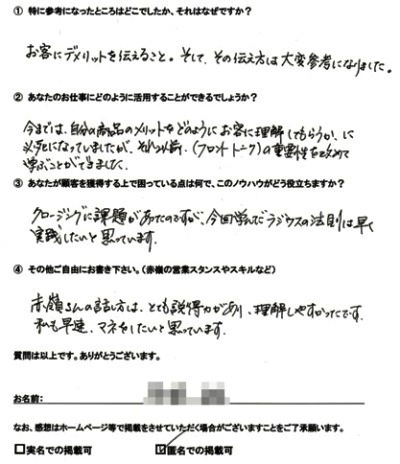 ① 特に参考になったところはどこでしたか、それはなぜですか？
お客にデメリットを伝えること。そして、その伝え方は大変参考になりました。
② あなたのお仕事にどのように活用することができるでしょうか？
今までは、自分の商品のメリットをどのようにお客に理解してもらうか、に
必死になっていましたが、それ以前、(フロントトーク)の重要性を改めて
学ぶことができました。
③ あなたが顧客を獲得する上で困っている点は何で、このノウハウがどう役立ちますか？
クロージングに課題があったのですが、今回学んだラジウスの法則は早く
実践したいと思っています。
④ その他ご自由にお書き下さい。（赤嶺の営業スタンスやスキルなど）
赤嶺さんの話し方は、とても説得力があり、理解しやすかったです。
私も早速、マネをしたいと思っています。
質問は以上です。ありがとうございます。
お名前：
なお、感想はホームページ等で掲載をさせていただく場合がございますことをご了承願います。
□実名での掲載可 ☑匿名での掲載可